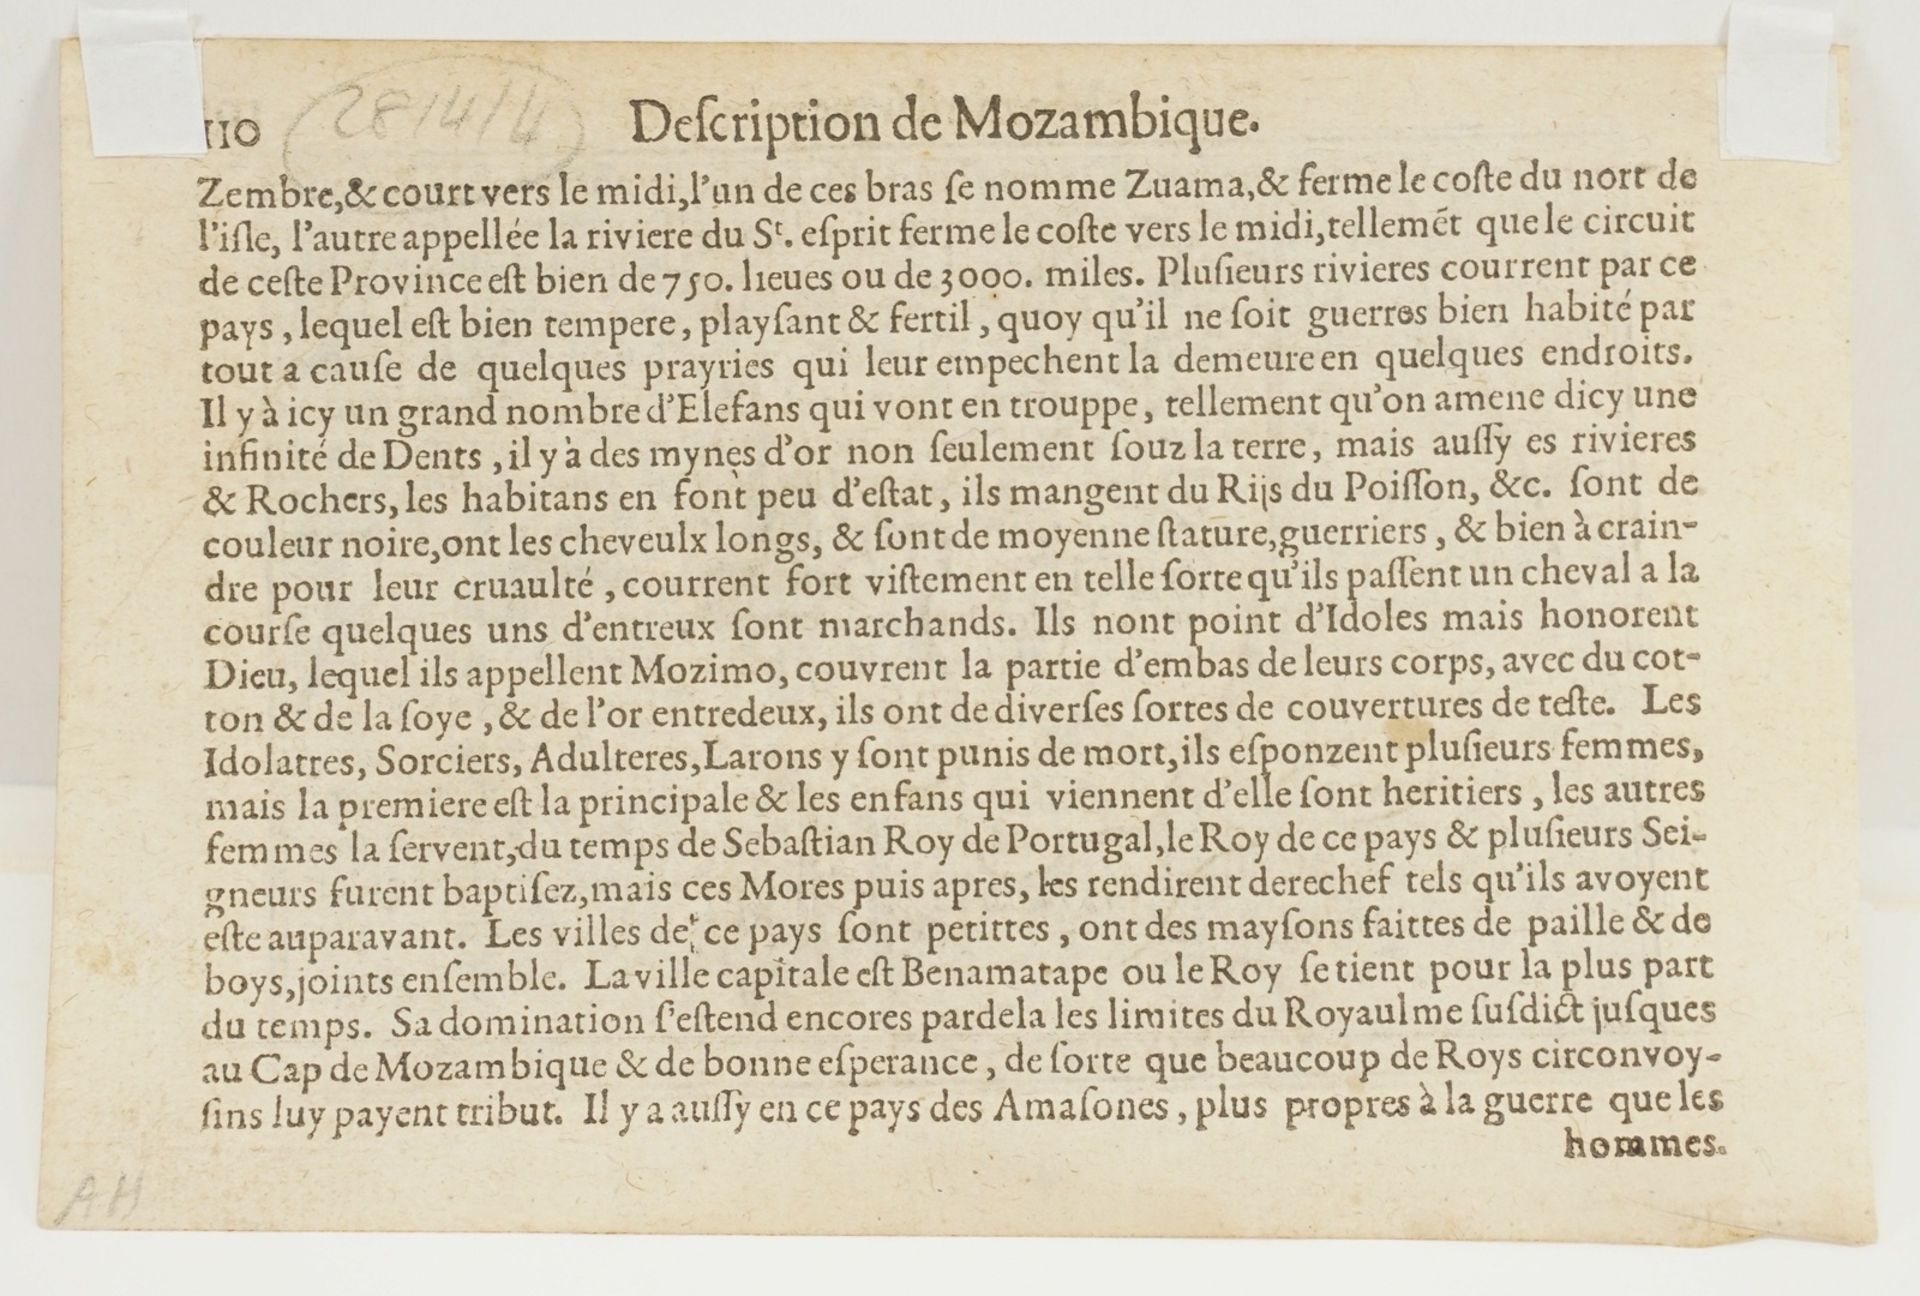 110 2814/4 Deſcription de Mozambique.
Zembre, & court vers le midi, l'un de ces bras ſe nomme Zuama, & ferme le coſte du nort de
l'iſle, l'autre appellée la riviere du Sᵗ. eſprit ferme le coſte vers le midi, tellemẽt que le circuit
de ceſte Province eſt bien de 750. lieues ou de 3000. miles. Pluſieurs rivieres courrent par ce
pays, lequel eſt bien tempere, playſant & fertil, quoy qu'il ne ſoit guerres bien habité par
tout a cauſe de quelques prayries qui leur empechent la demeure en quelques endroits.
Il y à icy un grand nombre d'Elefans qui vont en trouppe, tellement qu'on amene dicy une
infinité de Dents, il y à des mynes d'or non ſeulement ſouz la terre, mais auſſy es rivieres
& Rochers, les habitans en font peu d'eſtat, ils mangent du Rijs du Poiſſon, &c. ſont de
couleur noire, ont les cheveulx longs, & ſont de moyenne ſtature, guerriers, & bien à crain-
dre pour leur cruaulté, courrent fort viſtement en telle ſorte qu'ils paſſent un cheval a la
courſe quelques uns d'entreux ſont marchands. Ils nont point d'Idoles mais honorent
Dieu, lequel ils appellent Mozimo, couvrent la partie d'embas de leurs corps, avec du cot-
ton & de la ſoye, & de l'or entredeux, ils ont de diverſes ſortes de couvertures de teſte. Les
Idolatres, Sorciers, Adulteres, Larons y ſont punis de mort, ils eſponzent pluſieurs femmes,
mais la premiere eſt la principale & les enfans qui viennent d'elle ſont heritiers, les autres
femmes la ſervent, du temps de Sebaſtian Roy de Portugal, le Roy de ce pays & pluſieurs Sei-
gneurs furent baptiſez, mais ces Mores puis apres, les rendirent derechef tels qu'ils avoyent
eſte auparavant. Les villes de ce pays ſont petittes, ont des mayſons faittes de paille & de
boys, joints enſemble. La ville capitale eſt Benamatape ou le Roy ſe tient pour la plus part
du temps. Sa domination ſ'eſtend encores pardela les limites du Royaulme ſuſdict juſques
au Cap de Mozambique & de bonne eſperance, de ſorte que beaucoup de Roys circonvoy-
ſins luy payent tribut. Il y a auſſy en ce pays des Amaſones, plus propres à la guerre que les
hommes.
AH